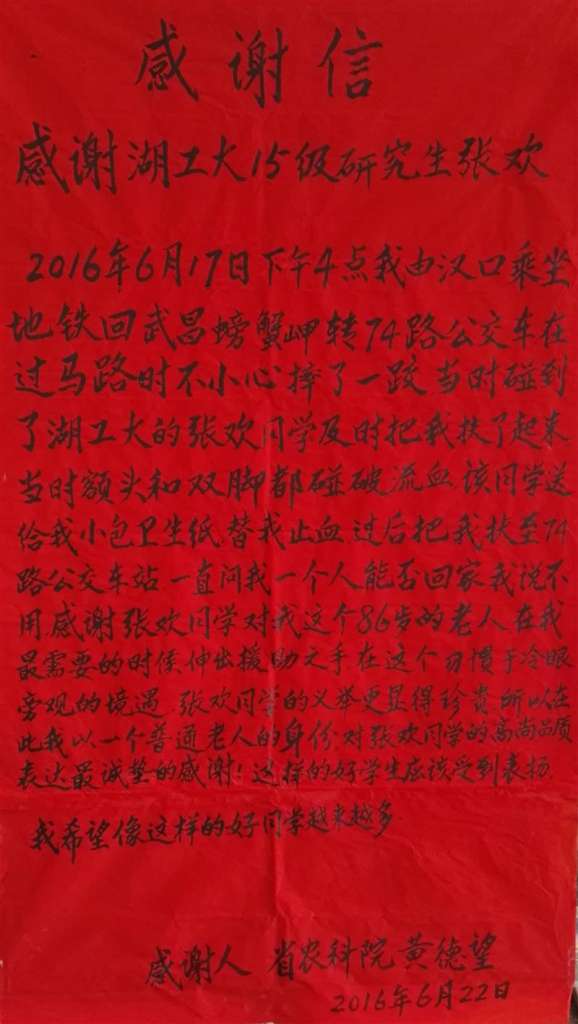 感谢信
感谢湖工大15级研究生张欢
2016年6月17日下午4点我由汉口乘坐
地铁回武昌螃蟹岬转74路公交车在
过马路时不小心摔了一跤当时碰到
了湖工大的张欢同学及时把我扶了起来
当时额头和双脚都碰破流血该同学送
给我小包卫生纸替我止血.过后把我扶至74
路公交车站.一直问我一个人能否回家我说不
用.感谢张欢同学对我这个86岁的老人在我
最需要的时侯伸出援助之手在这个习惯于冷眼
旁观的境遇.张欢同学的义举更显得珍贵所以在
此我以一个普通老人的身份.对张欢同学的高尚品质
表达最诚挚的感谢!这样的好学生应该受到表扬.
我希望像这样的好同学越来越多
感谢人 省农科院黄德望
2016年6月22日